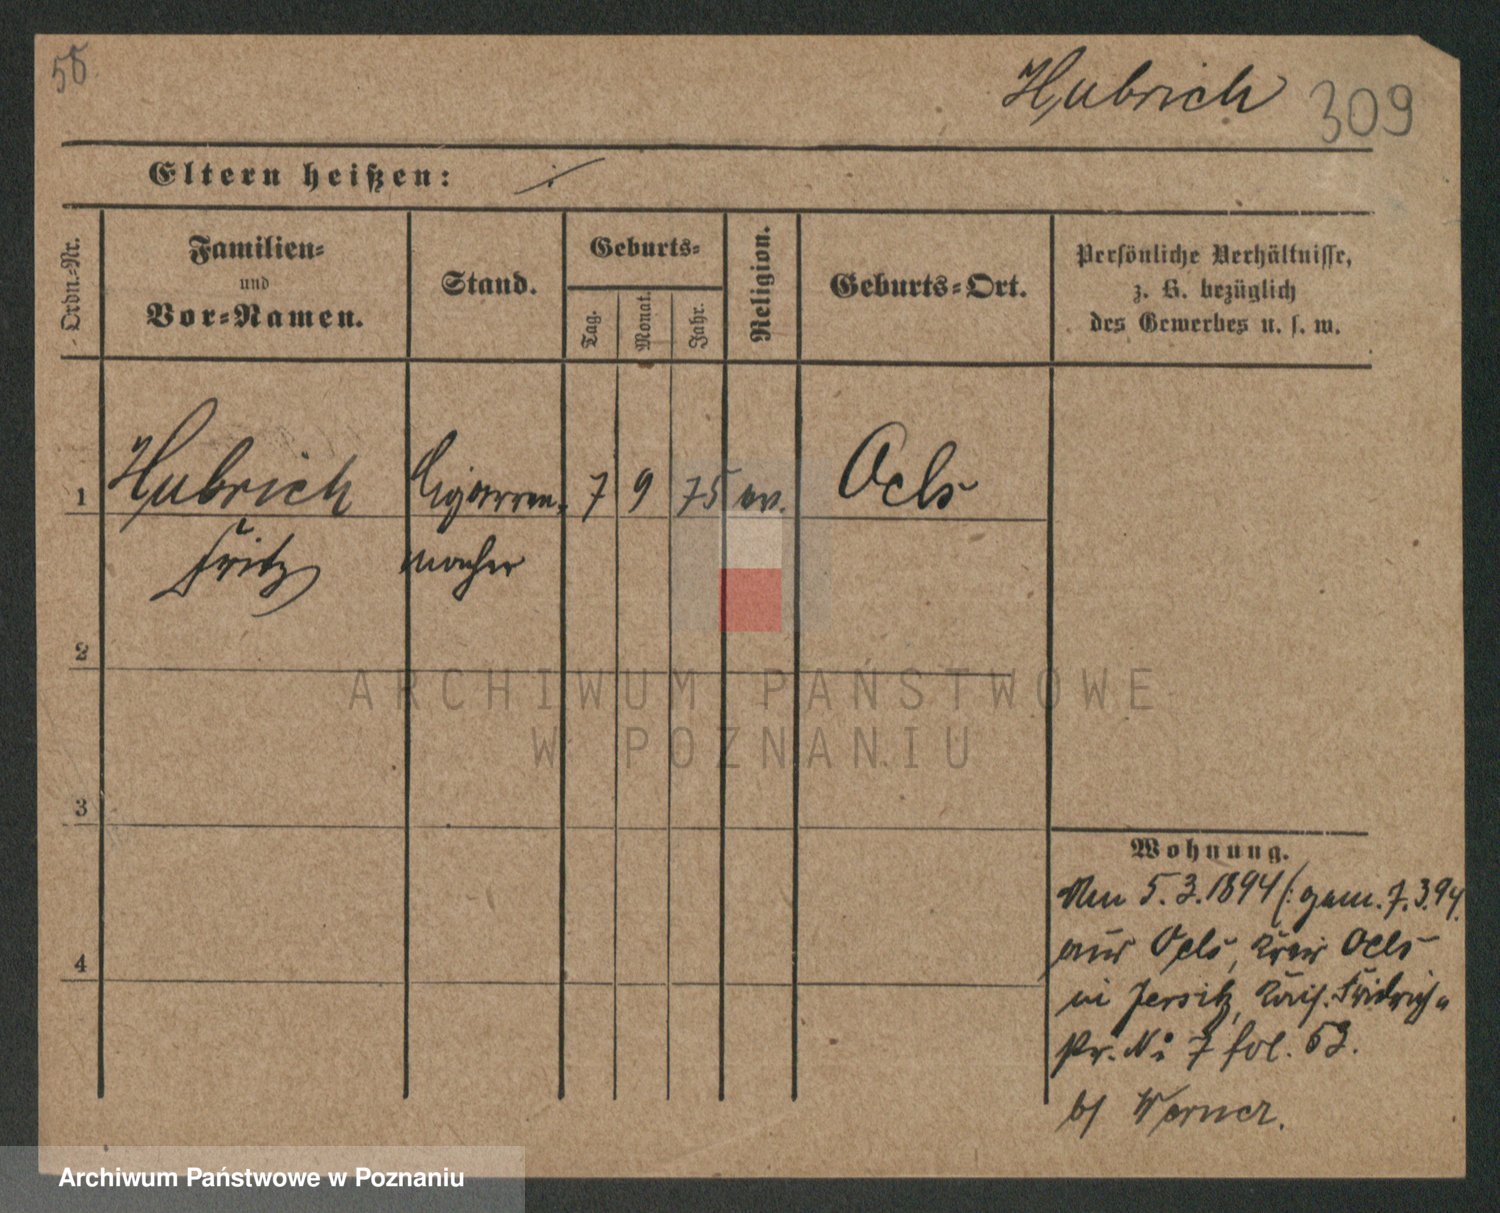 58
Hubrich 309
Eltern heißen:
Ordn.-Nr.
Familien-
und
Vor-Namen.
Stand.
Geburts-
Tag.
Monat.
Jahr.
Religion.
Geburts-Ort.
Persönliche Verhältnisse,
z. B. bezüglich
des Gewerbes u. s. w.
1 Hubrich Cigarren- 7 9 75 ev. Oels
Fritz macher
2
ARCHIWUM PAŃSTWOWE
W POZNANIU
3
4
Wohnung.
5.3.1894 (: gem. 7.3.94.
aus Oels, Kreis Oels
in Jersitz, Kais. Fridrich-
Str. No 7 fol. 53.
b/ Werner.
Archiwum Państwowe w Poznaniu